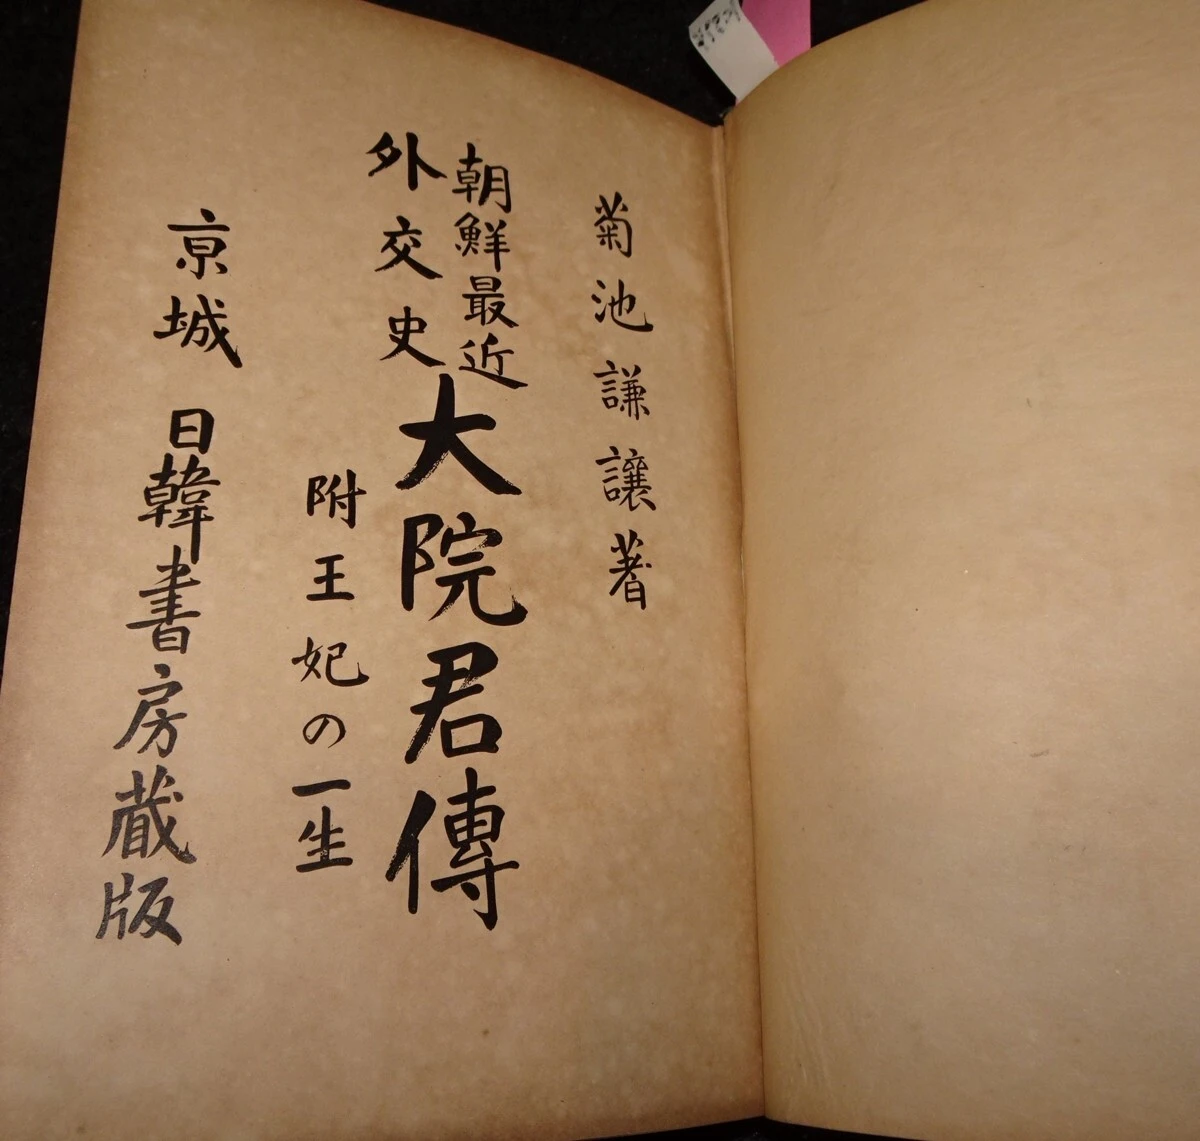 菊池謙譲著
朝鮮最近
外交史
大院君傳
附王妃の一生
京城 日韓書房蔵版